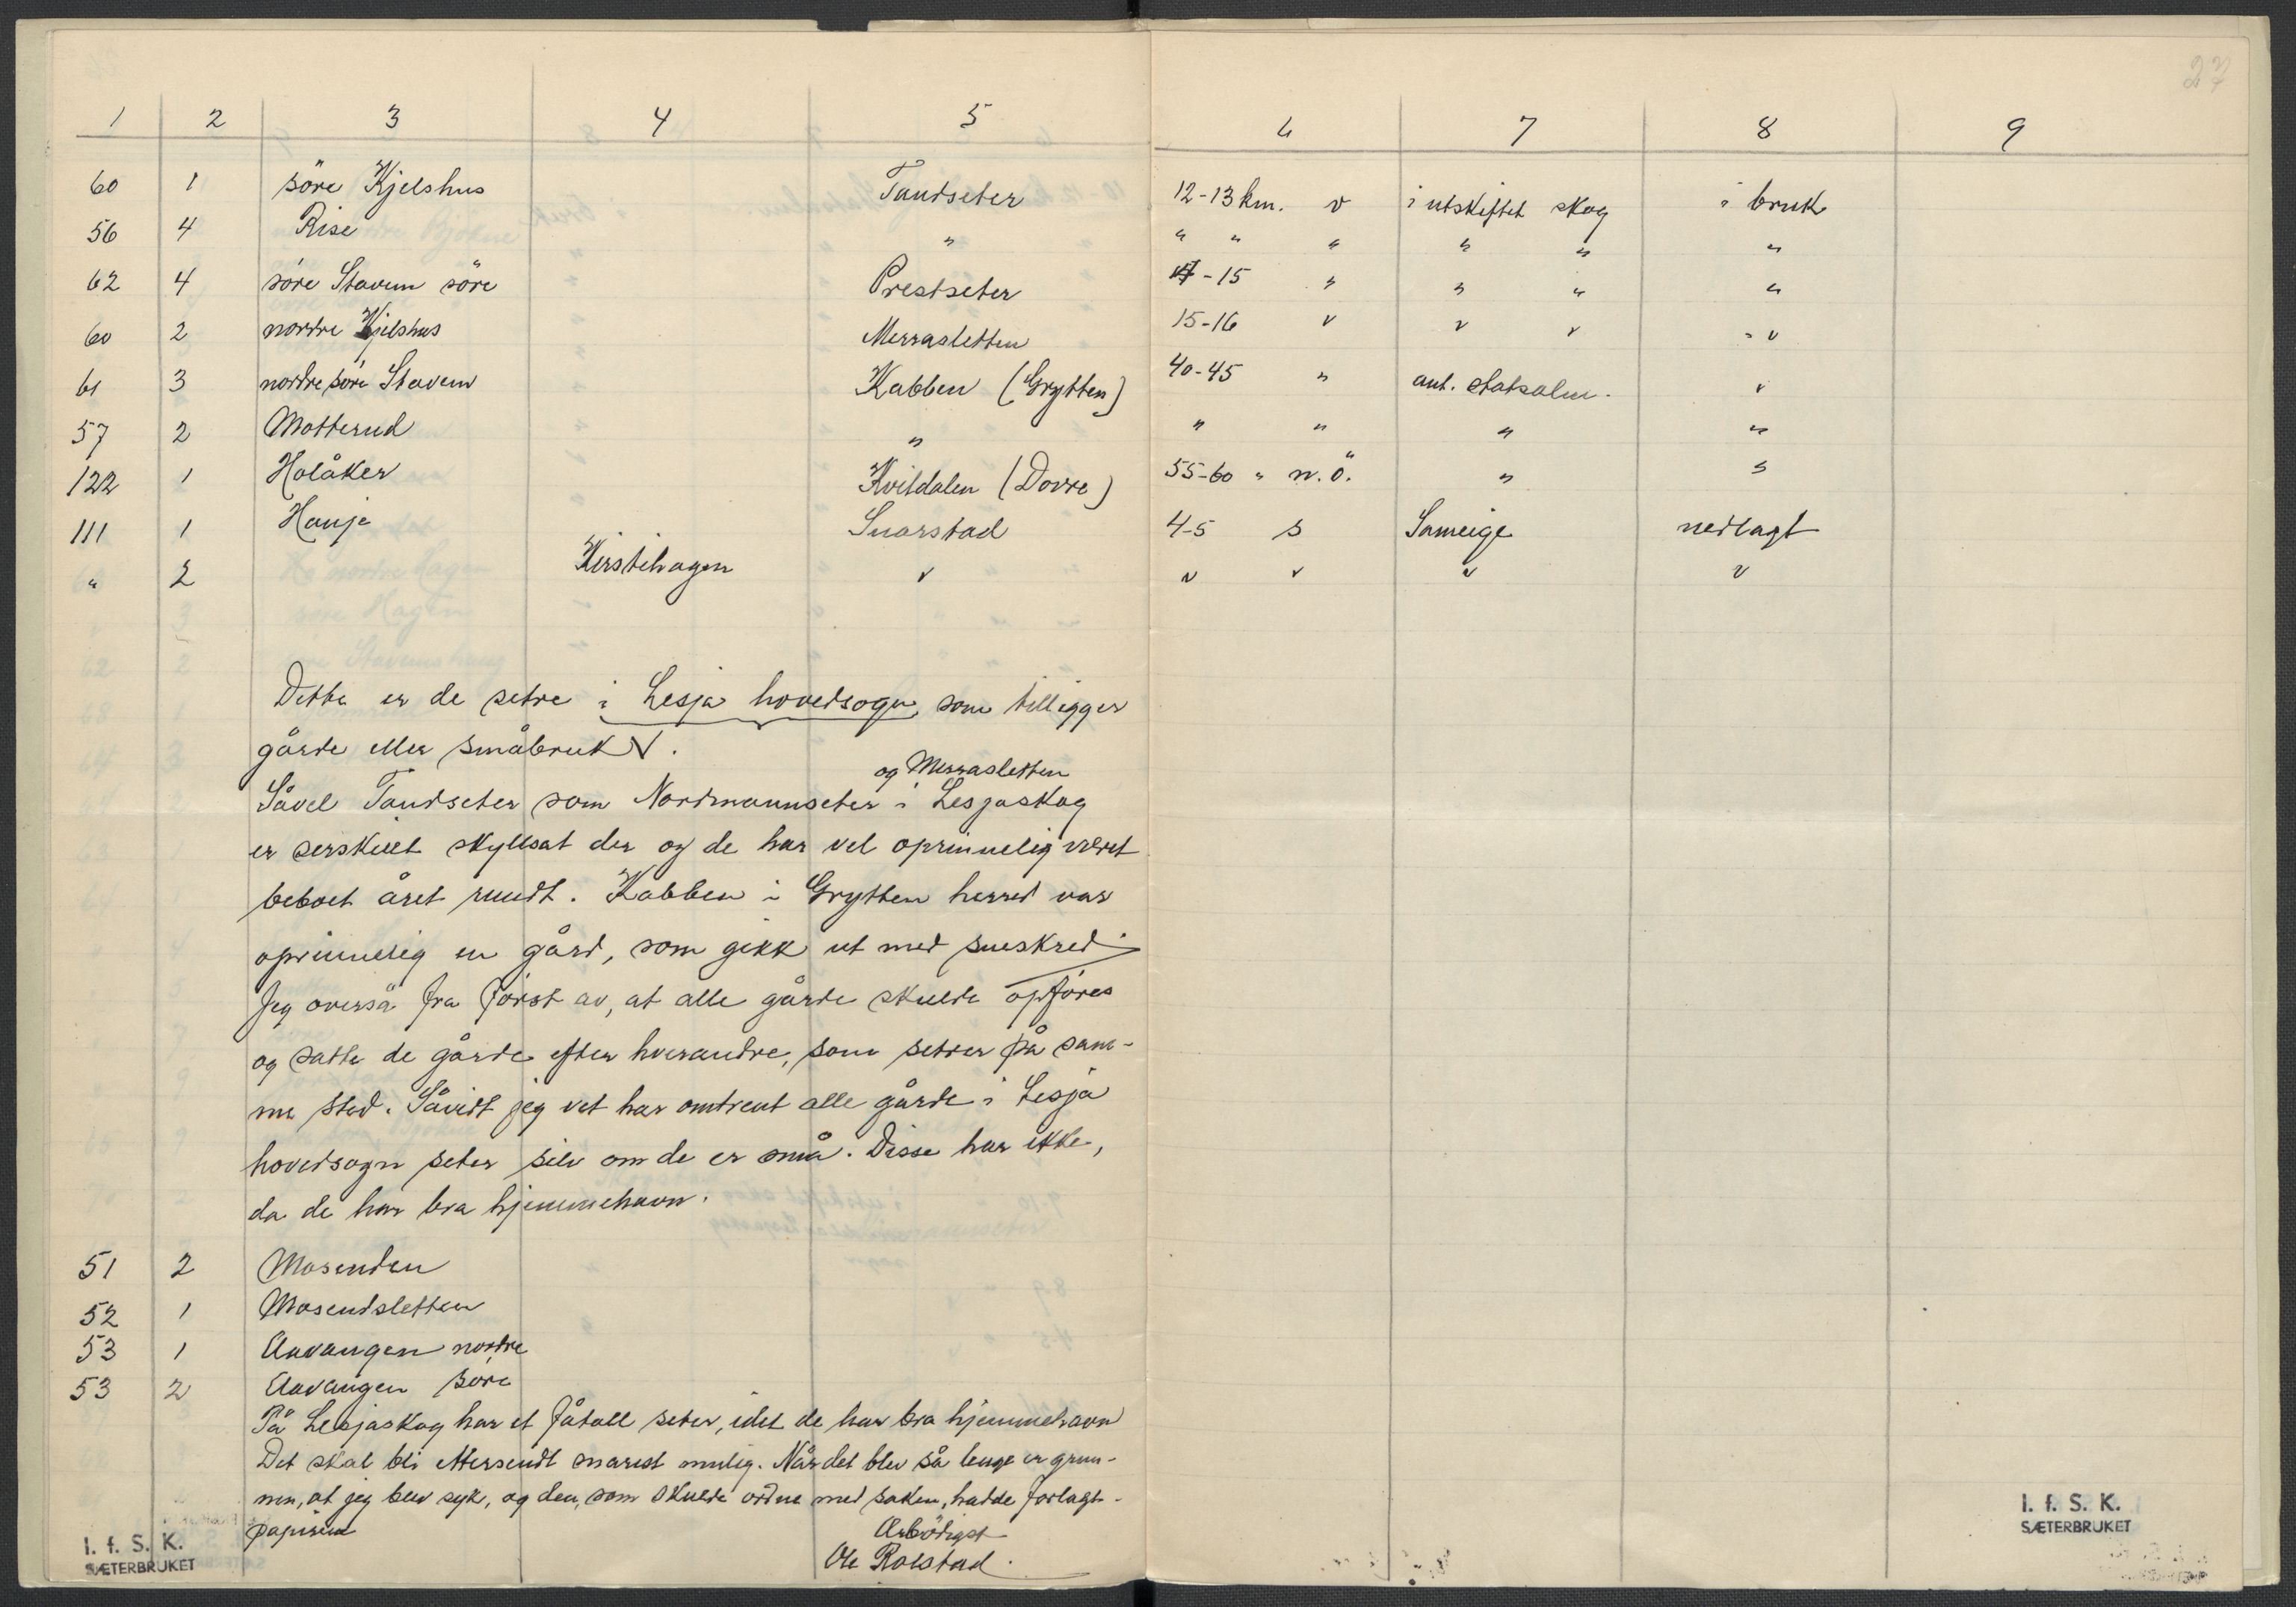 27
1 2 3 4 5 6 7 8 9
60 1 söre Kjelshus Tandseter 12-13 km. v i utskiftet skog i bruk
56 4 Rise " " " " " " "
62 4 söre Stavem söre Prestseter -15 " " " "
60 2 nordre Kjelshus Merrasletten 15-16 v v v v
61 3 nordre söre Stavem Kabben (Grytten) 40-45 " ant. statsalm. v
57 2 Motterud " " " " "
122 1 Holåker Kvitdalen (Dovre) 55-60 " n.ö. " "
111 1 Hanje Snarstad 4-5 s Sameige nedlagt
" 2 Kirstihagen v v v v v
Dette er de setre i Lesja hovedsogn, som tilligger
gårde eller småbruk.
og Merrasletten
Såvel Tandseter som Nordmannseter i Lesjaskog
er serskilt skyldsat der og de har vel oprinnelig været
beboet året rundt. Kabben i Grytten herred var
oprinnelig en gård, som gikk ut med sneskred.
Jeg overså fra först av, at alle gårde skulde opföres
og satte de gårde efter hverandre, som setrer på sam-
me sted. Såvidt jeg vet har omtrent alle gårde i Lesja
hovedsogn seter selv om de er små. Disse har ikke,
da de har bra hjemmehavn.
51 2 Mosenden
52 1 Mosendsletten
53 1 Aavangen nordre
53 2 Aavangen söre
På Lesjaskog har et fåtall seter, idet de har bra hjemmehavn
Det skal bli ettersendt snarest mulig. Når det blev så lenge er grun-
nen, at jeg blev syk, og den, som skulde ordne med saken, hadde forlagt
papirene
Ærbödigst
Ole Rolstad.
I. f. S. K.
SÆTERBRUKET
I. f. S. K.
SÆTERBRUKET